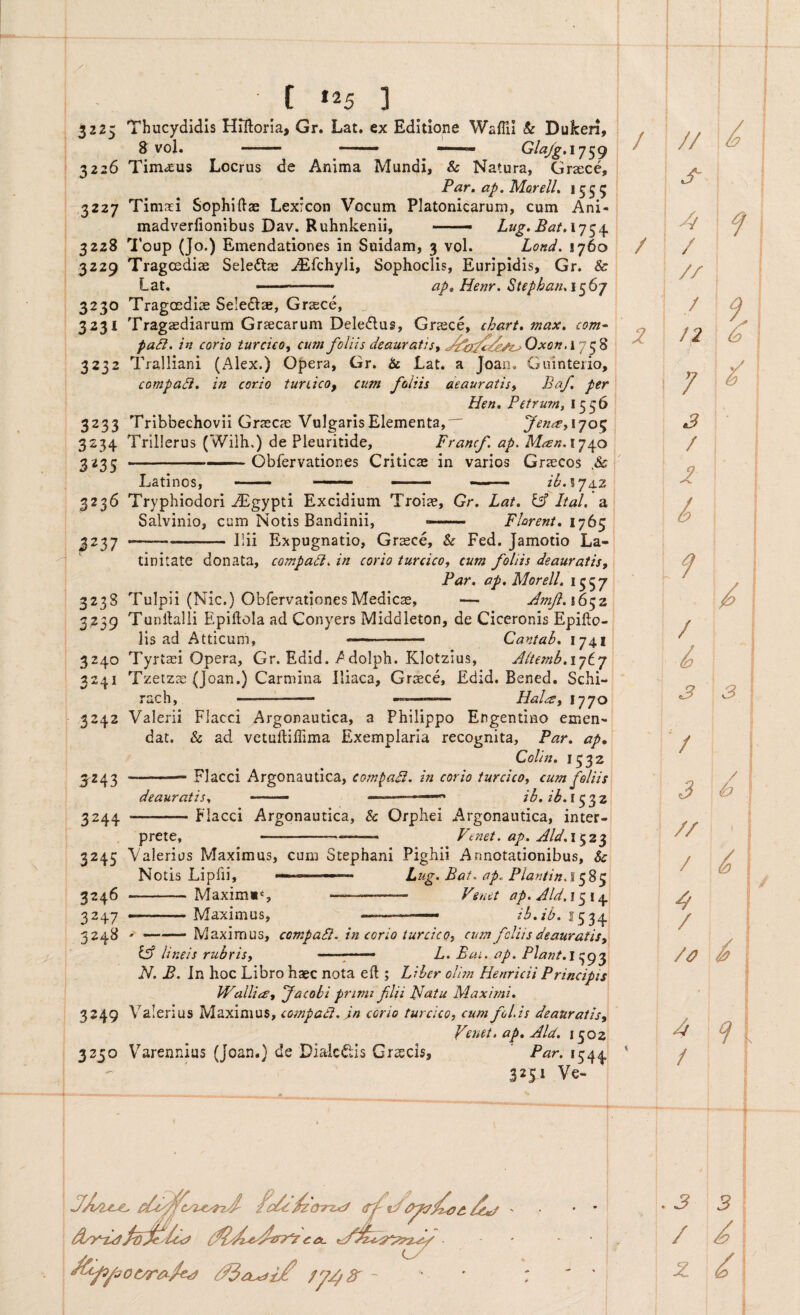 [ 125 ]
3225 Thucydidis Hiſtoria, Gr. Lat. ex Editione Waſſii & Dukeri,
8 vol. —— —— —— Glaſg. 1759 / 11 6
3226 Timæus Locrus de Anima Mundi, & Natura, Græcé,
Par. ap. Morell. 1555 5
3227 Timæi Sophiſtæ Lexicon Vocum Platonicarum, cum Ani-
madverſionibus Dav. Ruhnkenii, —— Lug. Bat. 1754 4 9
3228 Toup (Jo.) Emendationes in Suidam, 3 vol. Lond. 1760 / 1
3229 Tragœdiæ Selectæ Æſchyli, Sophoclis, Euripidis, Gr. &
Lat. —— ap. Henr. Stephan. 1567 11
3230 Tragœdiæ Selectæ, Græcé, 1 9
3231 Tragædiarum Græcarum Delectus, Græcé, chart. max. com-
pact. in corio turcico, cum foliis deauratis, Oxon. 1758 2 12 6
3232 Tralliani (Alex.) Opera, Gr. & Lat. a Joan. Guinterio,
compact. in corio turcico, cum foliis deauratis, Baſ. per
Hen. Petrum, 1556 7 6
3233 Tribbechovii Græcæ Vulgaris Elementa, Jenæ, 1705 3
3234 Trillerus (Wilh.) de Pleuritide, Francf. ap. Mæn. 1740 1
3235 —— Obſervationes Criticæ in varios Græcos &
Latinos, —— —— —— —— ib. 1742 2
3236 Tryphiodori Ægypti Excidium Troiæ, Gr. Lat. & Ital. a
Salvinio, cum Notis Bandinii, —— Florent. 1765 6
3237 —— Ilii Expugnatio, Græcé, & Fed. Jamotio La-
tinitate donata, compact. in corio turcico, cum foliis deauratis,
Par. ap. Morell. 1557 9
3238 Tulpii (Nic.) Obſervationes Medicæ, — Amſt. 1652 6
3239 Tunſtalli Epiſtola ad Conyers Middleton, de Ciceronis Epiſto-
lis ad Atticum, —— Cantab. 1741 1
3240 Tyrtæi Opera, Gr. Edid. Adolph. Klotzius, Altemb. 1767 6
3241 Tzetzæ (Joan.) Carmina Iliaca, Græcé, Edid. Bened. Schi-
rach, —— —— Halæ, 1770 3 3
3242 Valerii Flacci Argonautica, a Philippo Engentino emen-
dat. & ad vetuſtiſſima Exemplaria recognita, Par. ap.
Colin. 1532 1
3243 —— Flacci Argonautica, compact. in corio turcico, cum foliis
deauratis, —— —— ib. ib. 1532 3 6
3244 —— Flacci Argonautica, & Orphei Argonautica, inter-
prete, —— Venet. ap. Ald. 1523 11
3245 Valerius Maximus, cum Stephani Pighii Annotationibus, &
Notis Lipſii, —— Lug. Bat. ap. Plantin. 1585 1 6
3246 —— Maximus, —— Venet ap. Ald. 1514 4
3247 —— Maximus, —— ib. ib. 1534 1
3248 —— Maximus, compact. in corio turcico, cum foliis deauratis,
& lineis rubris, —— L. Bat. ap. Plant. 1593 10 6
N. B. In hoc Libro hæc nota eſt ; Liber olim Henricii Principis
Walliæ, Jacobi primi filii Natu Maximi.
3249 Valerius Maximus, compact. in corio turcico, cum foliis deauratis,
Venet. ap. Ald. 1502 4 9
3250 Varennius (Joan.) de Dialectis Græcis, Par. 1544 1
3251 Ve-
Three different Editions of 3 3
1 6
1748 2 6